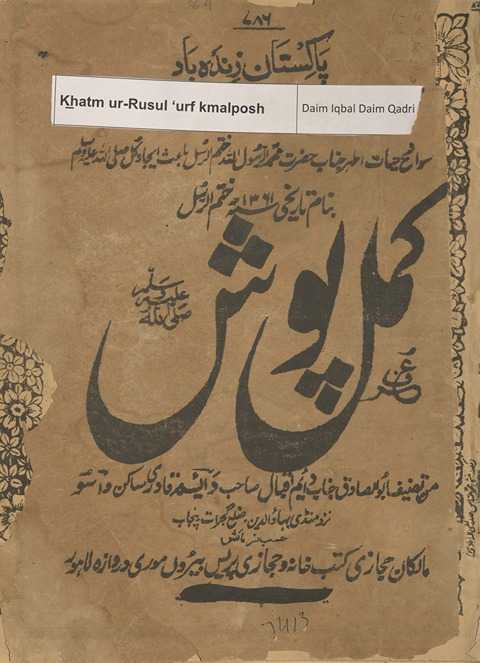 ۷۸۶
پاکستان زندہ باد
Khatm ur-Rusul ‘urf kmalposh
Daim Iqbal Daim Qadri
سوانح حیات اطہر جناب حضرت محمد رسول اللہ ختم الرسل باعث ایجاد کل صلی اللہ علیہ وسلم
بنام تاریخی ۱۳۶۱ھ ختم الرسل
عرف
کمل پوش
صلی اللہ علیہ وسلم
من تصنیف ابوالصادق جناب دائم اقبال صاحب دائم قادری ساکن واسو
نزد منڈی بہاؤالدین ضلع گجرات پنجاب
حسب فرمائش
مالکان حجازی کتب خانہ و حجازی پریس بیرون موری دروازہ لاہور